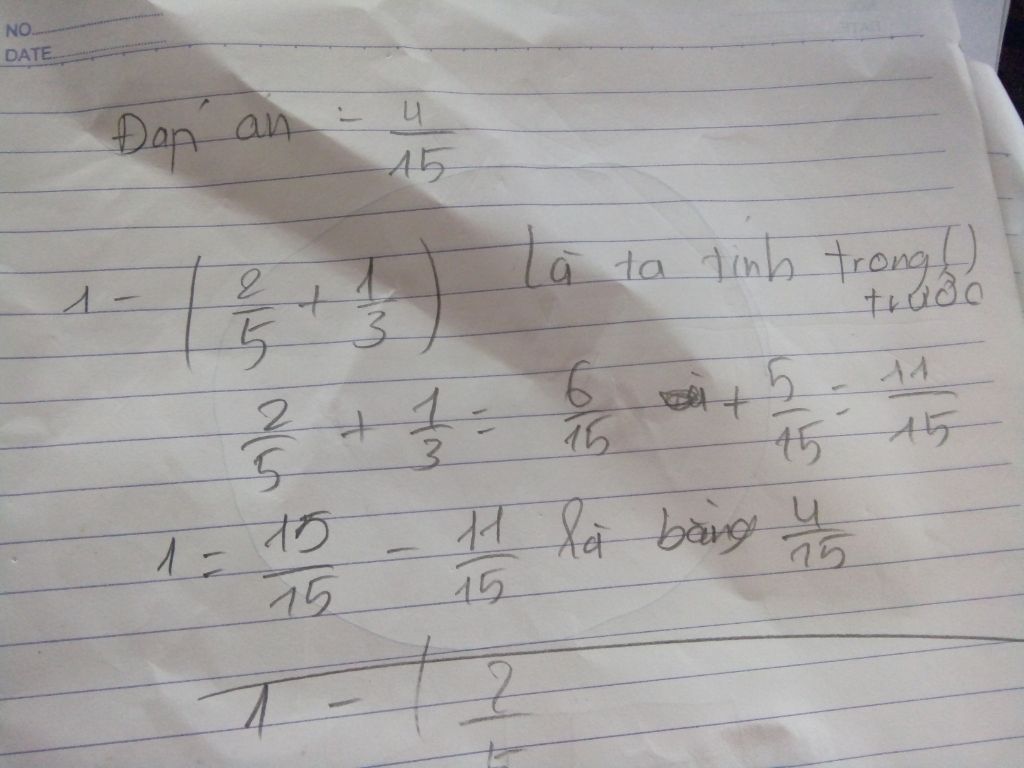 NO.
DATE
Đáp án = 4/15
1 - (2/5 + 1/3) Là ta tính trong ()
trước
2/5 + 1/3 = 6/15 + 5/15 = 11/15
1 = 15/15 - 11/15 là bằng 4/15
1 - ( 2/5